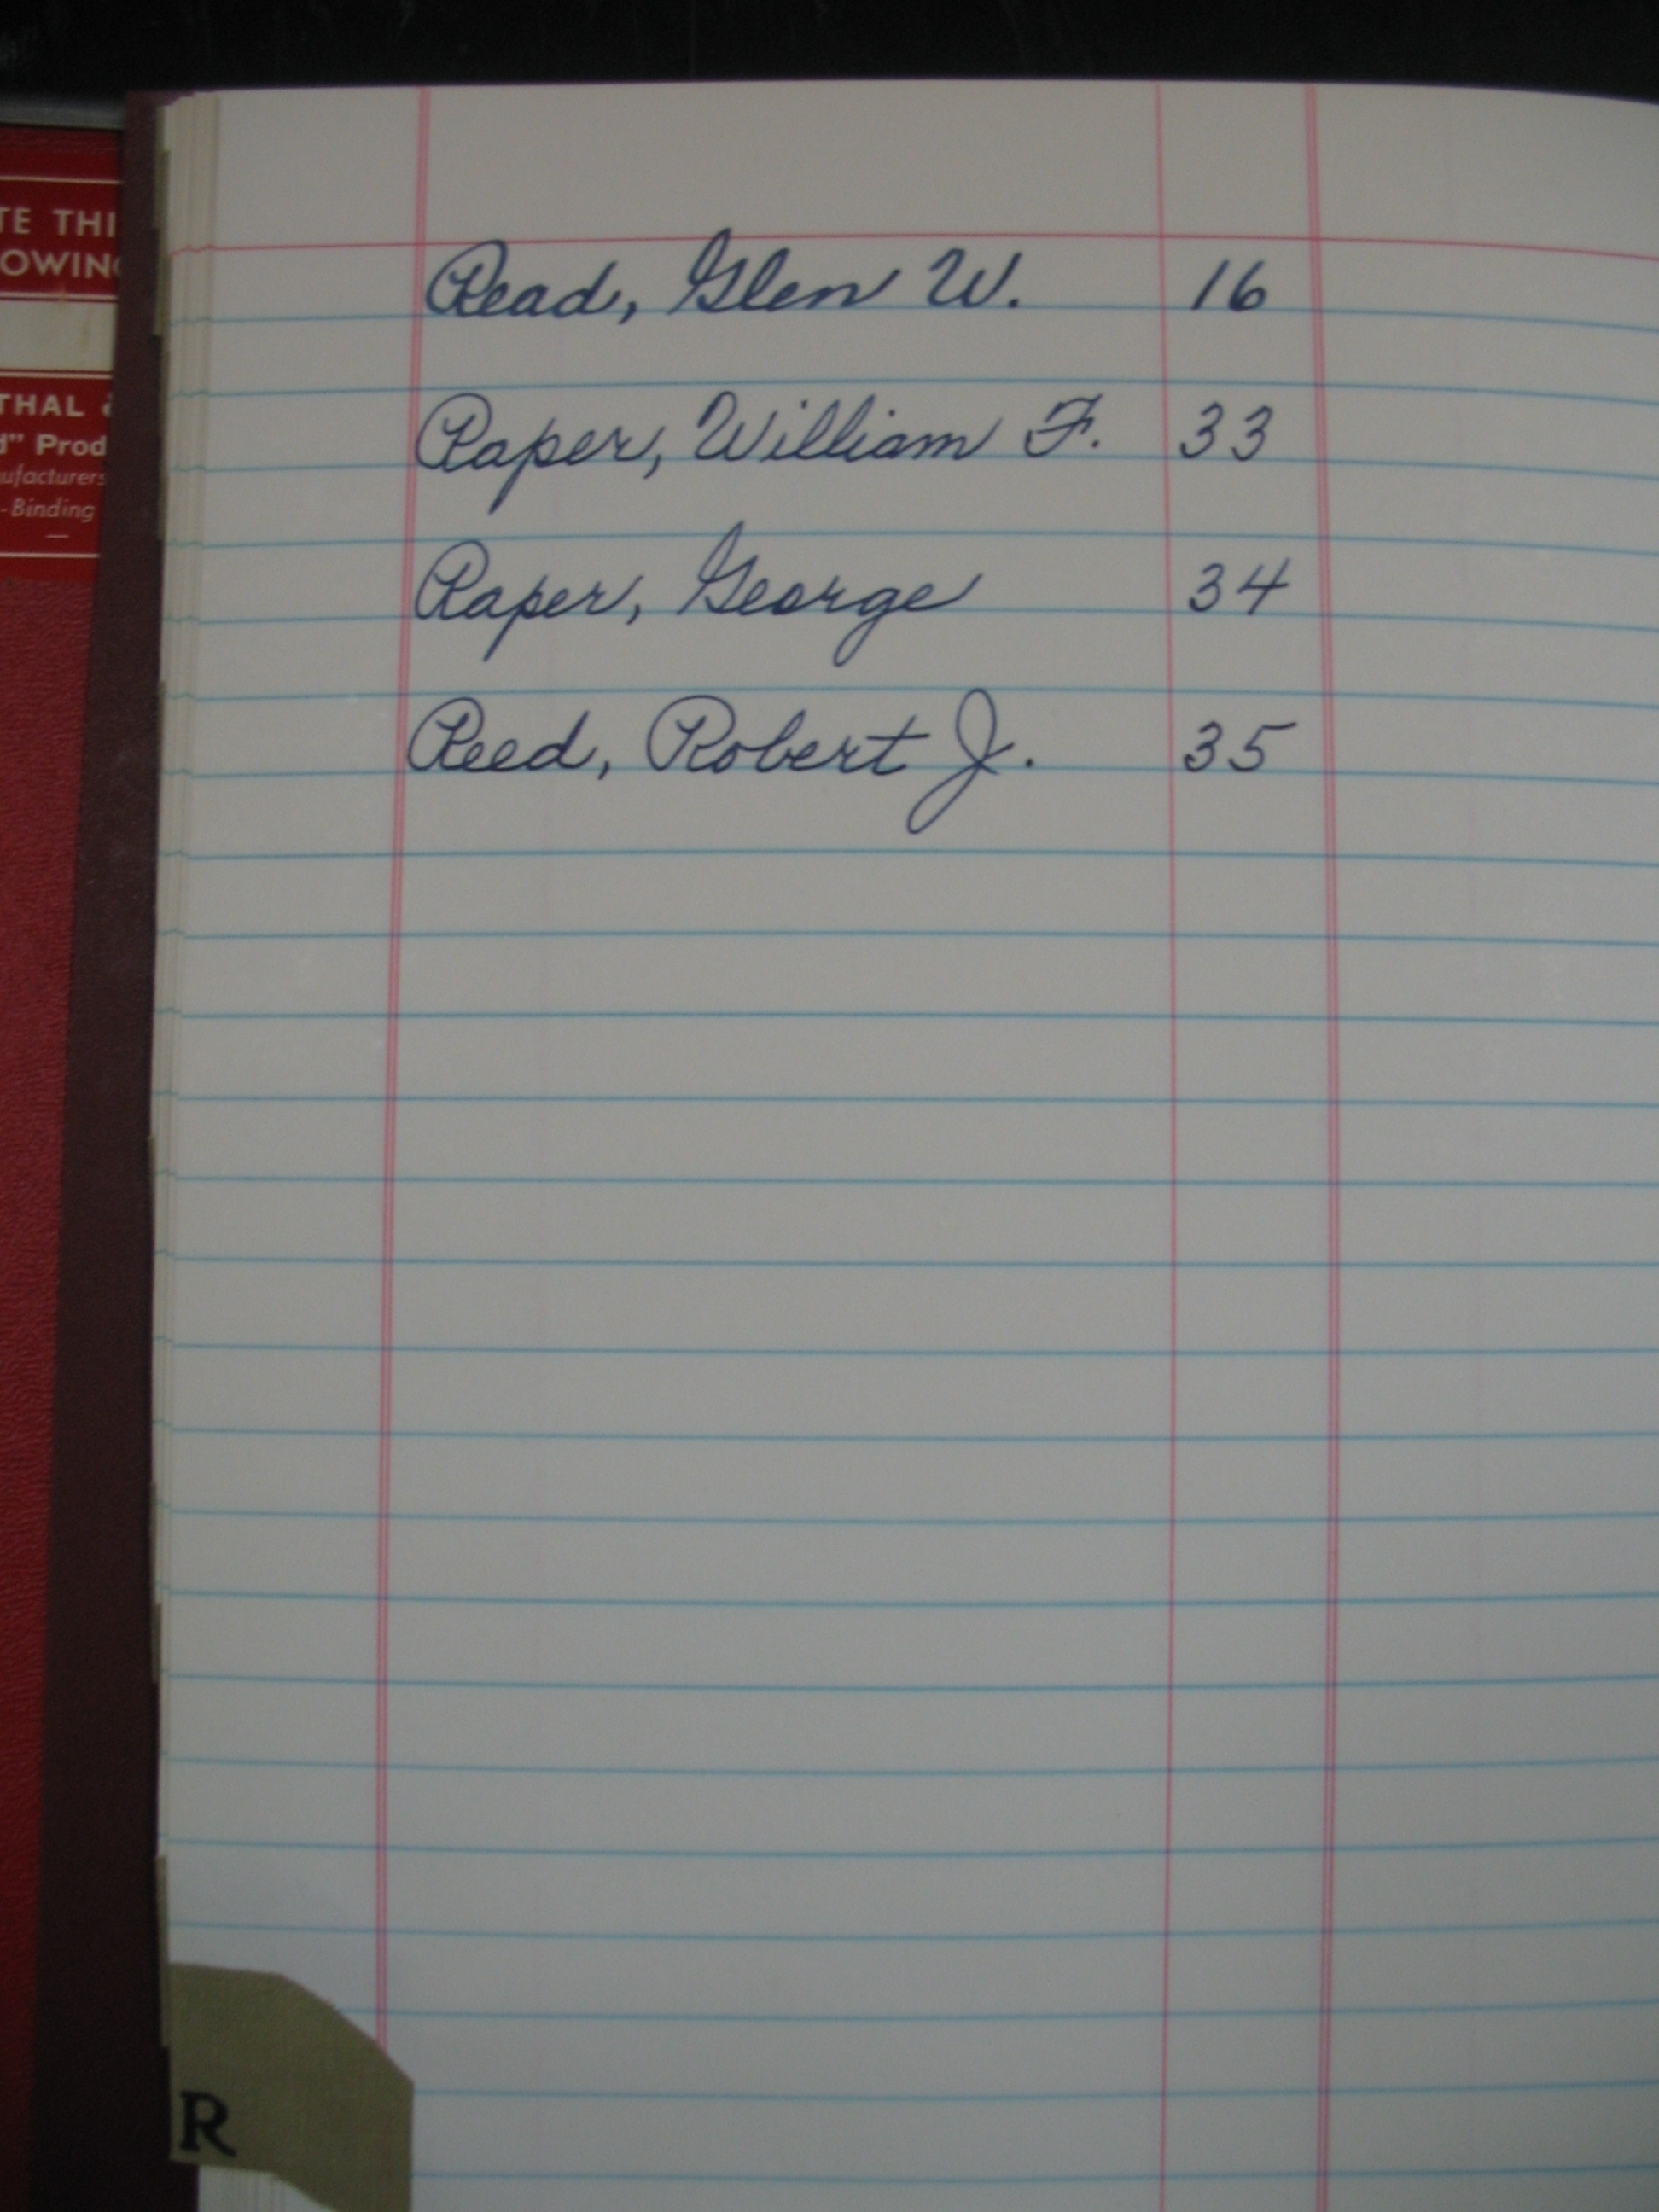 TE THI
OWING
THAL &
d" Prod
ufacturers
-Binding
Read, Glen W. 16
Raper, William F. 33
Raper, George 34
Reed, Robert J. 35
R